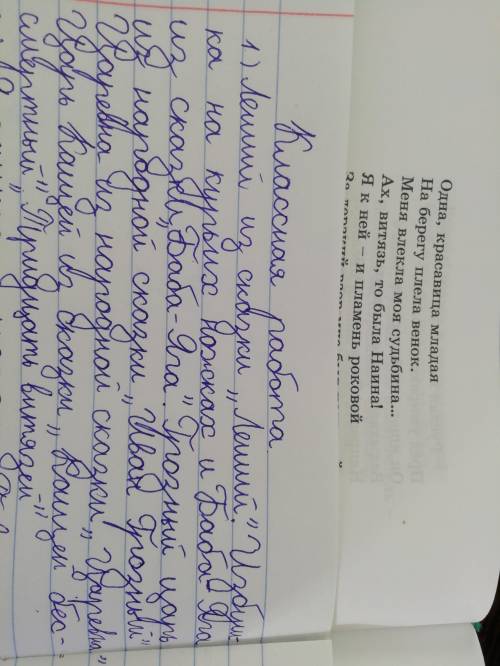 Одна, красавица младая
На берегу плела венок.
Меня влекла моя судьбина...
Ах, витязь, то была Наина!
Я к ней – и пламень роковой
Классная работа
1) Леший из сказки „Леший". Избуш-
ка на курьих ножках и Баба Яга
из сказки „Баба-Яга". Грозный царь
из народной сказки „Иван Грозный"
Царевна из народной сказки „Царевна",
Царь Кащей из сказки „Кащей бес-
смертный". Тридцать витязей